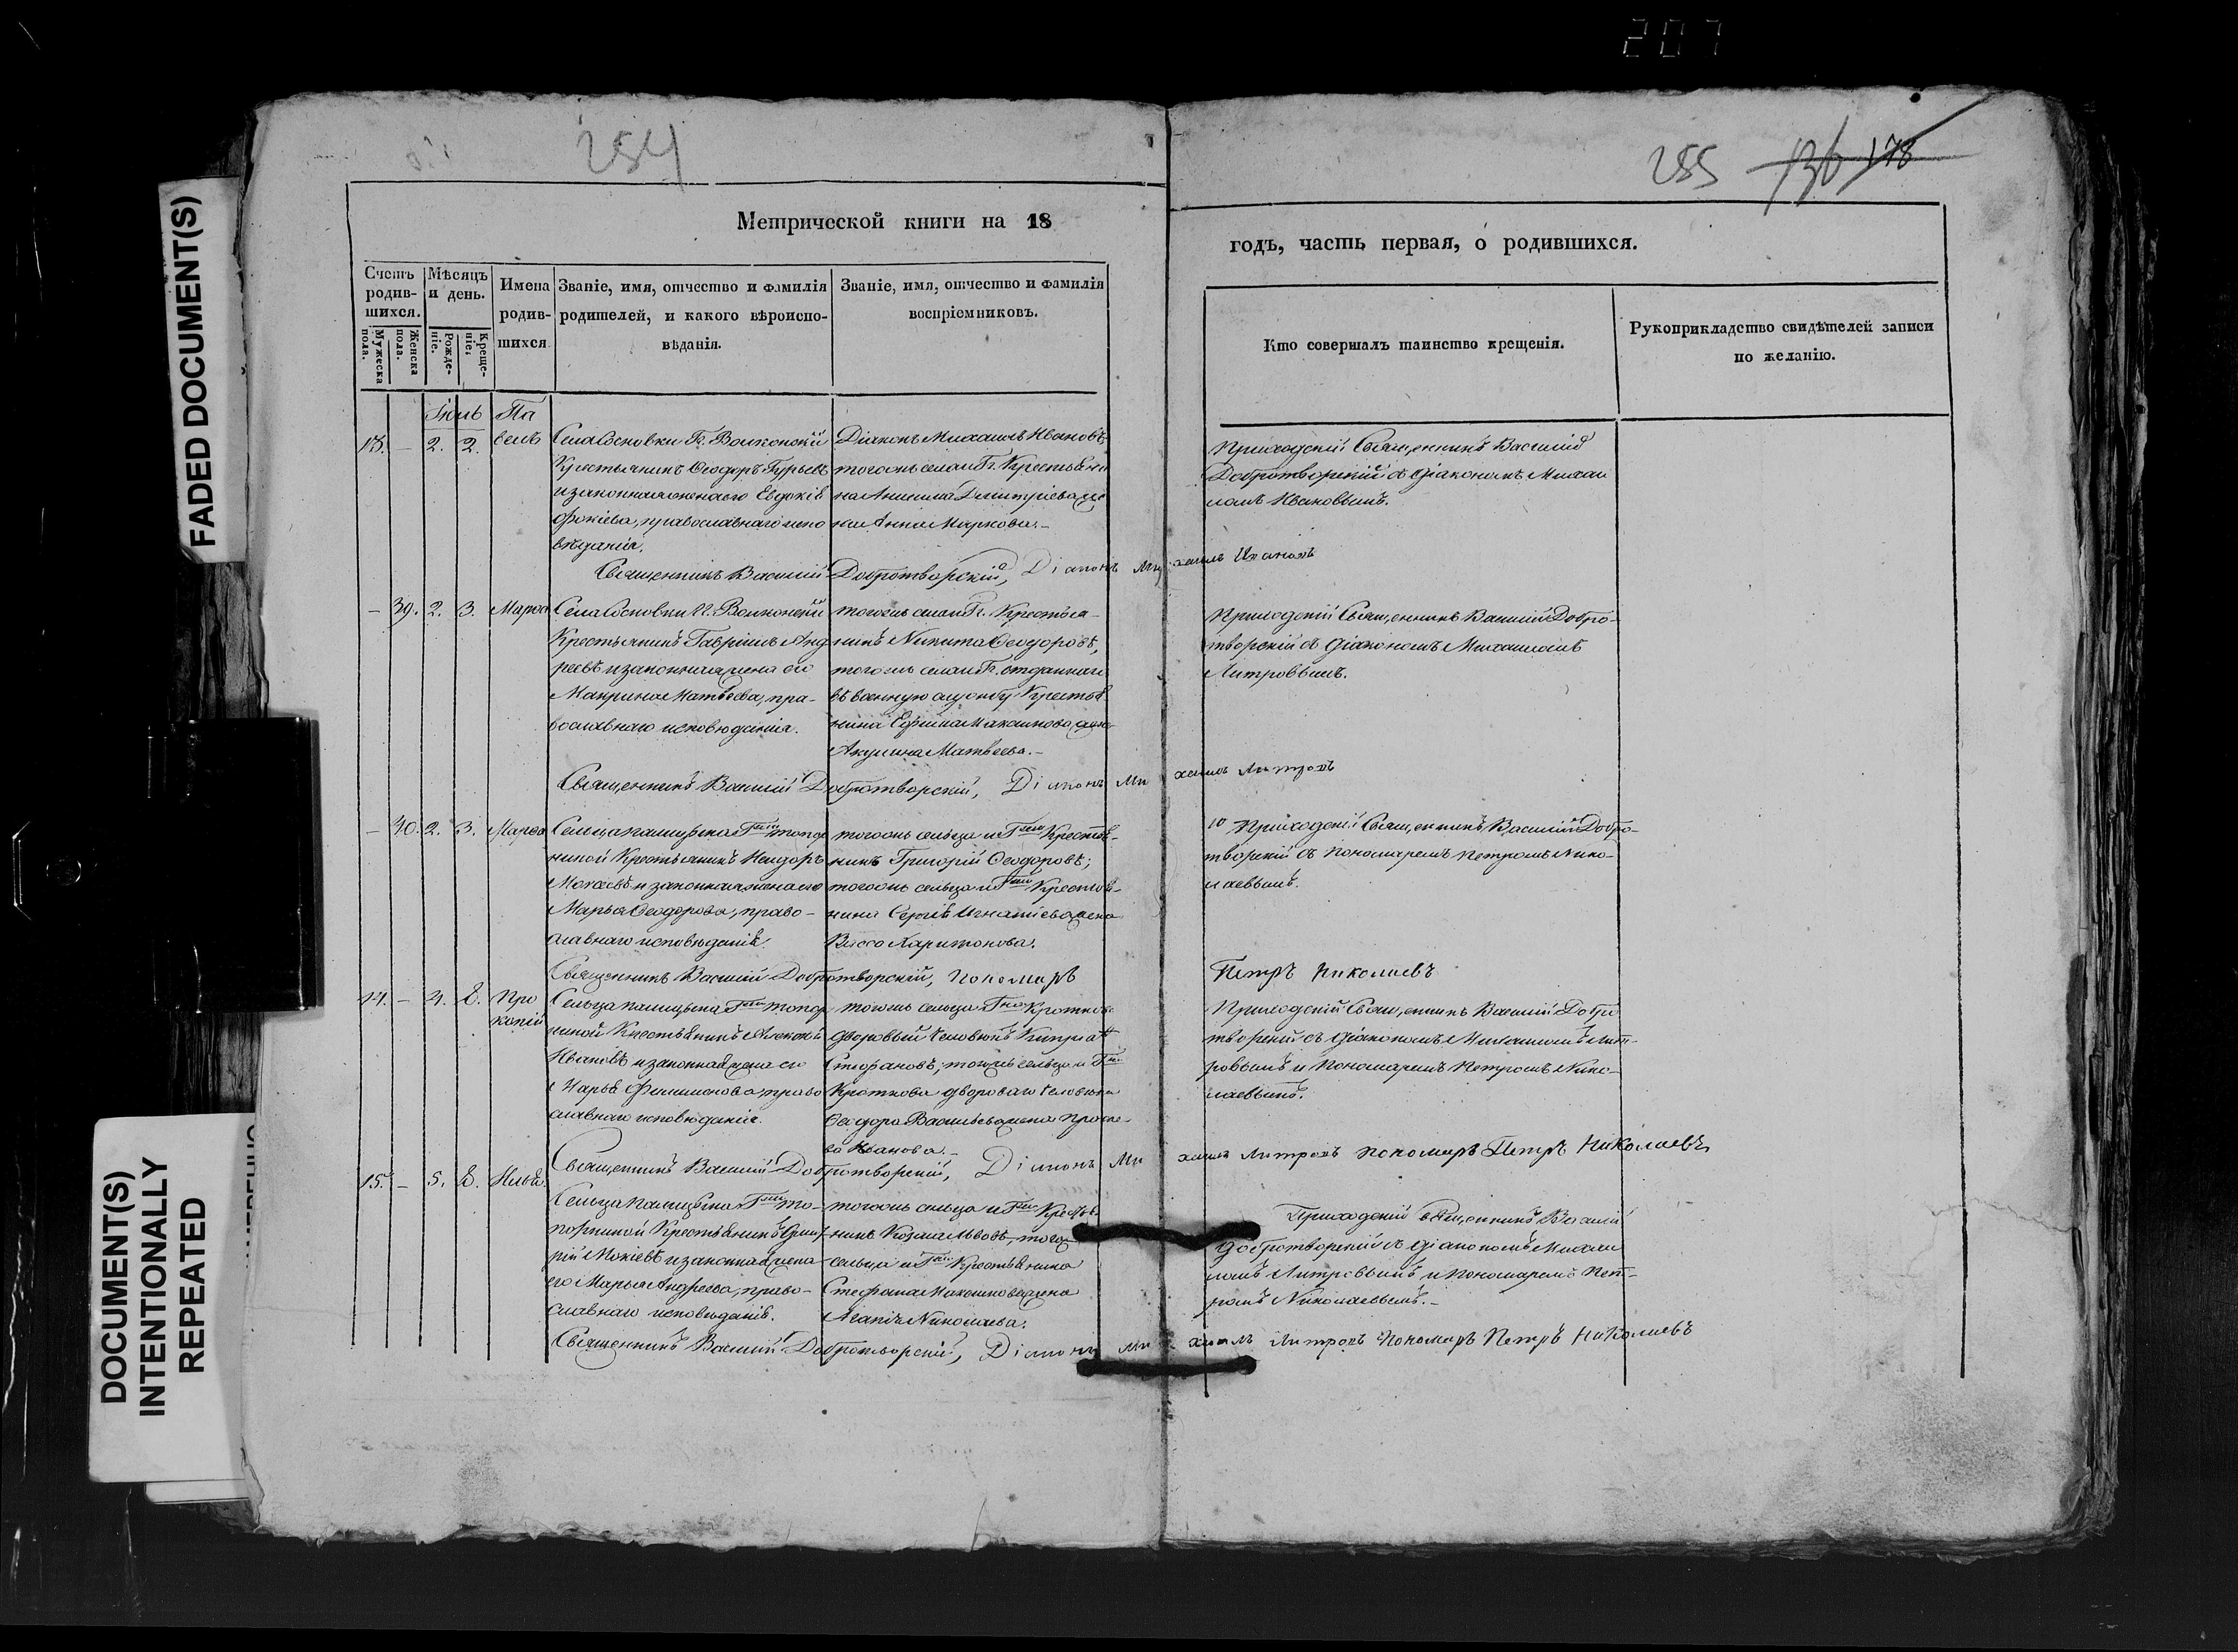 207
254
255 136 178
FADED DOCUMENT(S)
DOCUMENT(S)
INTENTIONALLY
REPEATED
Метрической книги на 18
годъ, часть первая, о родившихся.
Счетъ родив-шихся.
Мужеска пола.
Женска пола.
Мѣсяцъ и день.
Рожде-ніе.
Креще-ніе.
Имена родив-шихся
Званіе, имя, отчество и фамилія
родителей, и какого вѣроиспо-
вѣданія.
Званіе, имя, отчество и фамилія
воспріемниковъ.
Кто совершалъ таинство крещенія.
Рукоприкладство свидѣтелей записи
по желанію.
Іюль
13. – 2. 2. Павелъ
Села Сосновки Г. Волконскій
Крестьянинъ Ѳеодоръ Гурьевъ
и законная жена его Евдокія
Фокіева, православнаго испо
вѣданія.
Діаконъ Михаилъ Ивановъ
тогожъ села и Г. Крестьяни
на Анисима Дмитріева же
на Анна Маркова.-
Приходскій Священникъ Василій
Добротворскій съ Діакономъ Михаи
ломъ Ивановымъ.
Священникъ Василій Добротворскій, Діаконъ Михаилъ Ивановъ
– 39. 2. 3. Марѳа
Села Сосновки Г. Волконскій
Крестьянинъ Гавріилъ Анд
реевъ и законная жена его
Макрина Матвѣева, пра-
вославнаго исповѣданія.
тогожъ села и Г. Крестья-
нинъ Никита Ѳеодоровъ,
тогожъ села и Г. отданнаго
въ военную службу Крестья
нина Ефима Максимова жена
Акулина Матвѣева.-
Приходскій Священникъ Василій Добро-
творскій съ Діакономъ Михаиломъ
Митровымъ.
Священникъ Василій Добротворскій, Діаконъ Михаилъ Митровъ
– 40. 2. 3. Марѳа
Сельца
ниной Крестьянинъ
Мокѣевъ и законная жена его
Марья Ѳеодорова, право-
славнаго исповѣданія.
тогожъ сельца и Крестья-
нинъ Григорій Ѳеодоровъ;
тогожъ сельца и Крестья-
нина Сергія Игнатіева жена
Васса Харитонова.
Приходскій Священникъ Василій Добро-
творскій съ Пономаремъ Петромъ Нико-
лаевымъ.
Священникъ Василій Добротворскій, Пономарь
Петръ Николаевъ
14. – 4. 8. Прокопій
Сельца
ниной Крестьянинъ Алексѣй
Ивановъ и законная жена его
Марья Филимонова, право
славнаго исповѣданія.
тогожъ сельца Кроткова
дворовый человѣкъ
Стефановъ, тогожъ сельца и
Кроткова двороваго человѣка
Ѳеодора Васильева жена
Иванова.-
Приходскій Священникъ Василій Добро
творскій съ Діакономъ Михаиломъ Мит-
ровымъ и Пономаремъ Петромъ Нико-
лаевымъ.
Священникъ Василій Добротворскій, Діаконъ Михаилъ Митровъ Пономарь Петръ Николаевъ
15. – 5. 8. Илья.
Сельца
Крестьянинъ
рій Мокіевъ и законная жена
его Марья Андреева, право-
славнаго исповѣданія.
тогожъ сельца и Крестья
нинъ Козма Львовъ, тогожъ
сельца и Крестьянина
Стефана Максимова жена
Агапія Николаева.
Приходскій Священникъ Василій
Добротворскій съ Діакономъ Михаи
ломъ Митровымъ и Пономаремъ Пет-
ромъ Николаевымъ.-
Священникъ Василій Добротворскій, Діаконъ Михаилъ Митровъ Пономарь Петръ Николаевъ